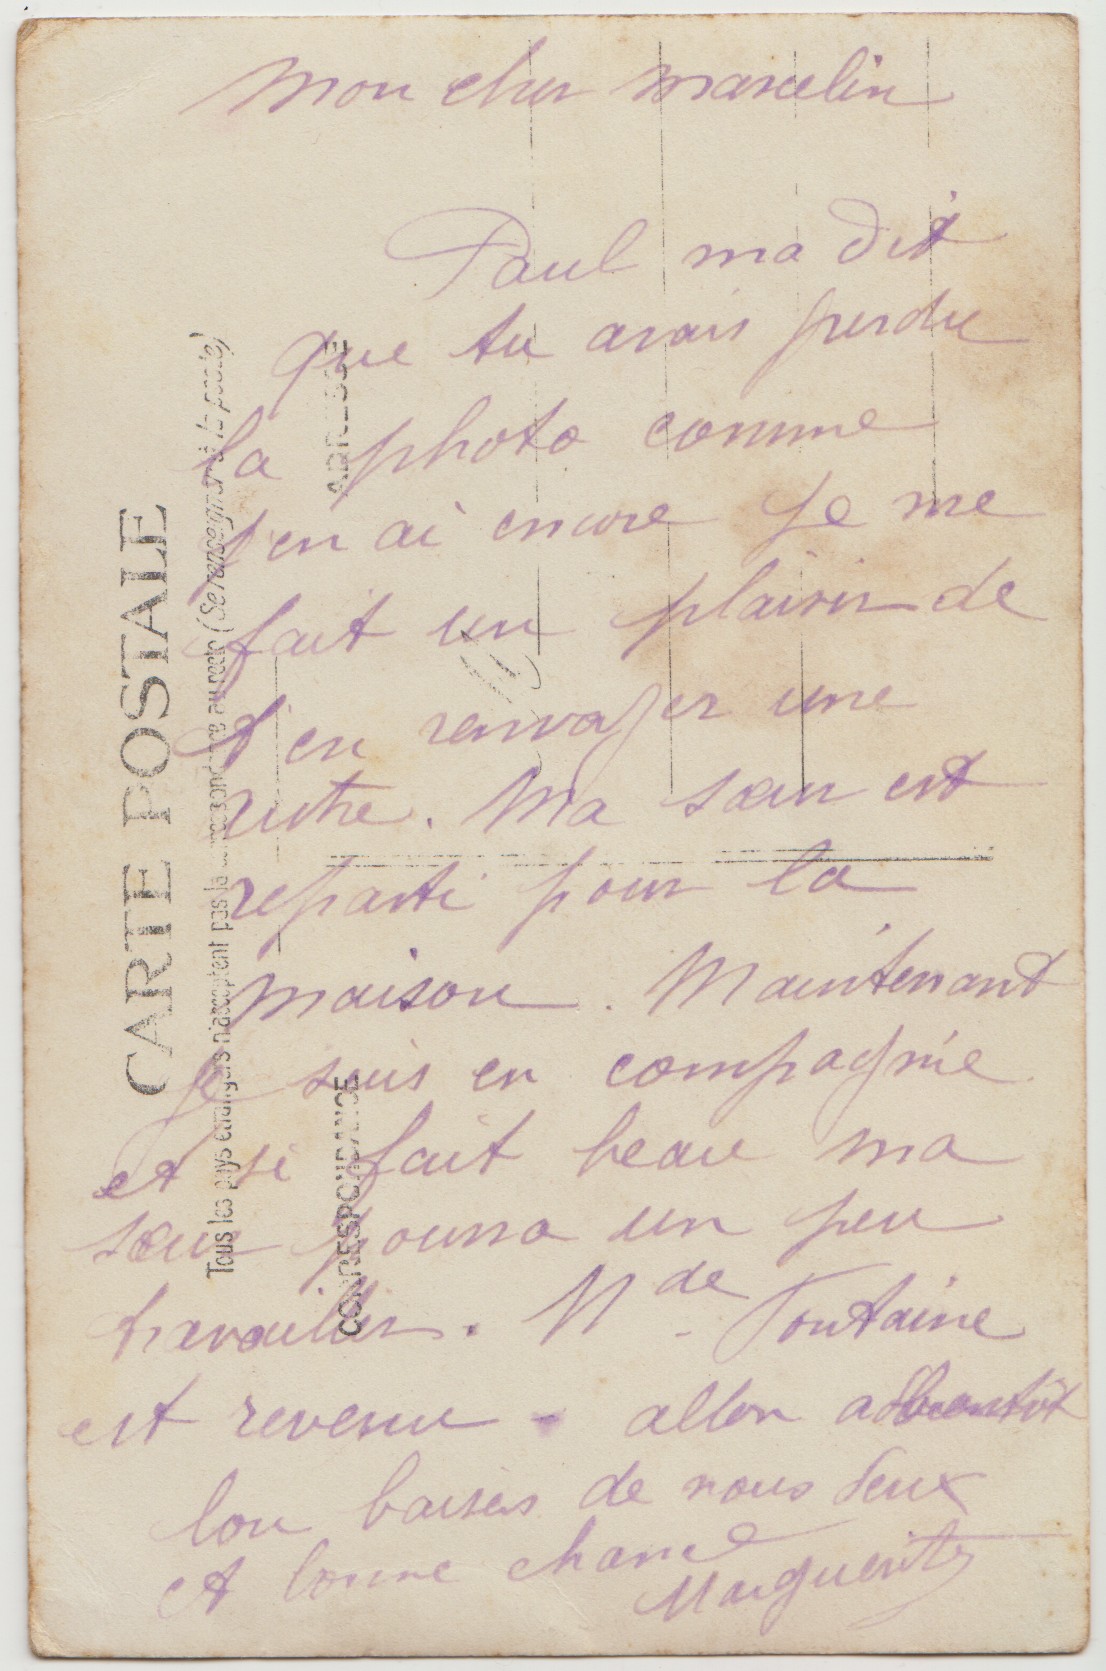 mon cher marcelin
Paul ma dit
que tu avais perdu
la photo comme
j'en ai encore je me
fait un plaisir de
t'en renvoyer une
autre. Ma sœur est
reparti pour la
maison. Maintenant
je suis en compagnie
et si fait beau ma
sœur pourra un peu
travailler. Mde Fontaine
est revenu - allon a bientôt
bon baisers de nous deux
et bonne chance
Marguerite
CARTE POSTALE
Tous les pays étrangers n'acceptent pas la correspondance au recto (Se renseigner à la poste)
CORRESPONDANCE
ADRESSE